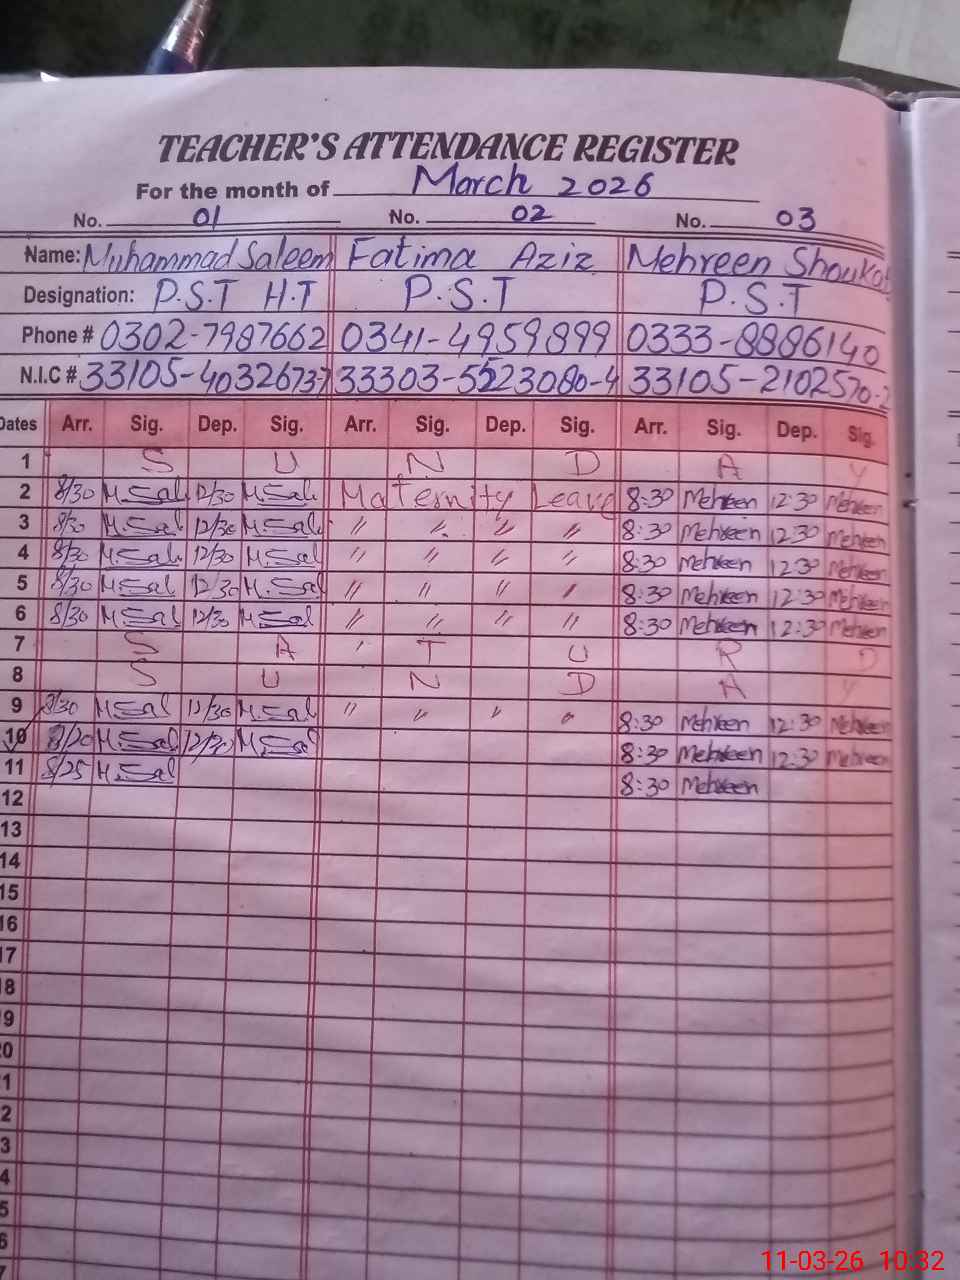 TEACHER'S ATTENDANCE REGISTER
For the month of March 2026
No. 01 No. 02 No. 03
Name: Muhammad Saleem Fatima Aziz Mehreen Shoukat
Designation: P.S.T H.T P.S.T P.S.T
Phone # 0302-7987662 0341-4959899 0333-8886140
N.I.C # 33105-4032673-7 33303-5523080-4 33105-2102570-2
Dates Arr. Sig. Dep. Sig. Arr. Sig. Dep. Sig. Arr. Sig. Dep. Sig.
1 S U N D A Y
2 8/30 M.Sal 12/30 M.Sal Maternity Leave 8:30 Mehreen 12:30 Mehreen
3 8/30 M.Sal 12/30 M.Sal " " " " 8:30 Mehreen 12:30 Mehreen
4 8/30 M.Sal 12/30 M.Sal " " " " 8:30 Mehreen 12:30 Mehreen
5 8/30 M.Sal 12/30 M.Sal " " " " 8:30 Mehreen 12:30 Mehreen
6 8/30 M.Sal 12/30 M.Sal " " " " 8:30 Mehreen 12:30 Mehreen
7 S A T U R D
8 S U N D A Y
9 8/30 M.Sal 12/30 M.Sal " " " " 8:30 Mehreen 12:30 Mehreen
10 8/20 M.Sal 12/30 M.Sal 8:30 Mehreen 12:30 Mehreen
11 8/25 M.Sal 8:30 Mehreen
12
13
14
15
16
17
18
19
20
1
2
3
4
5
6
7
11-03-26 10:32